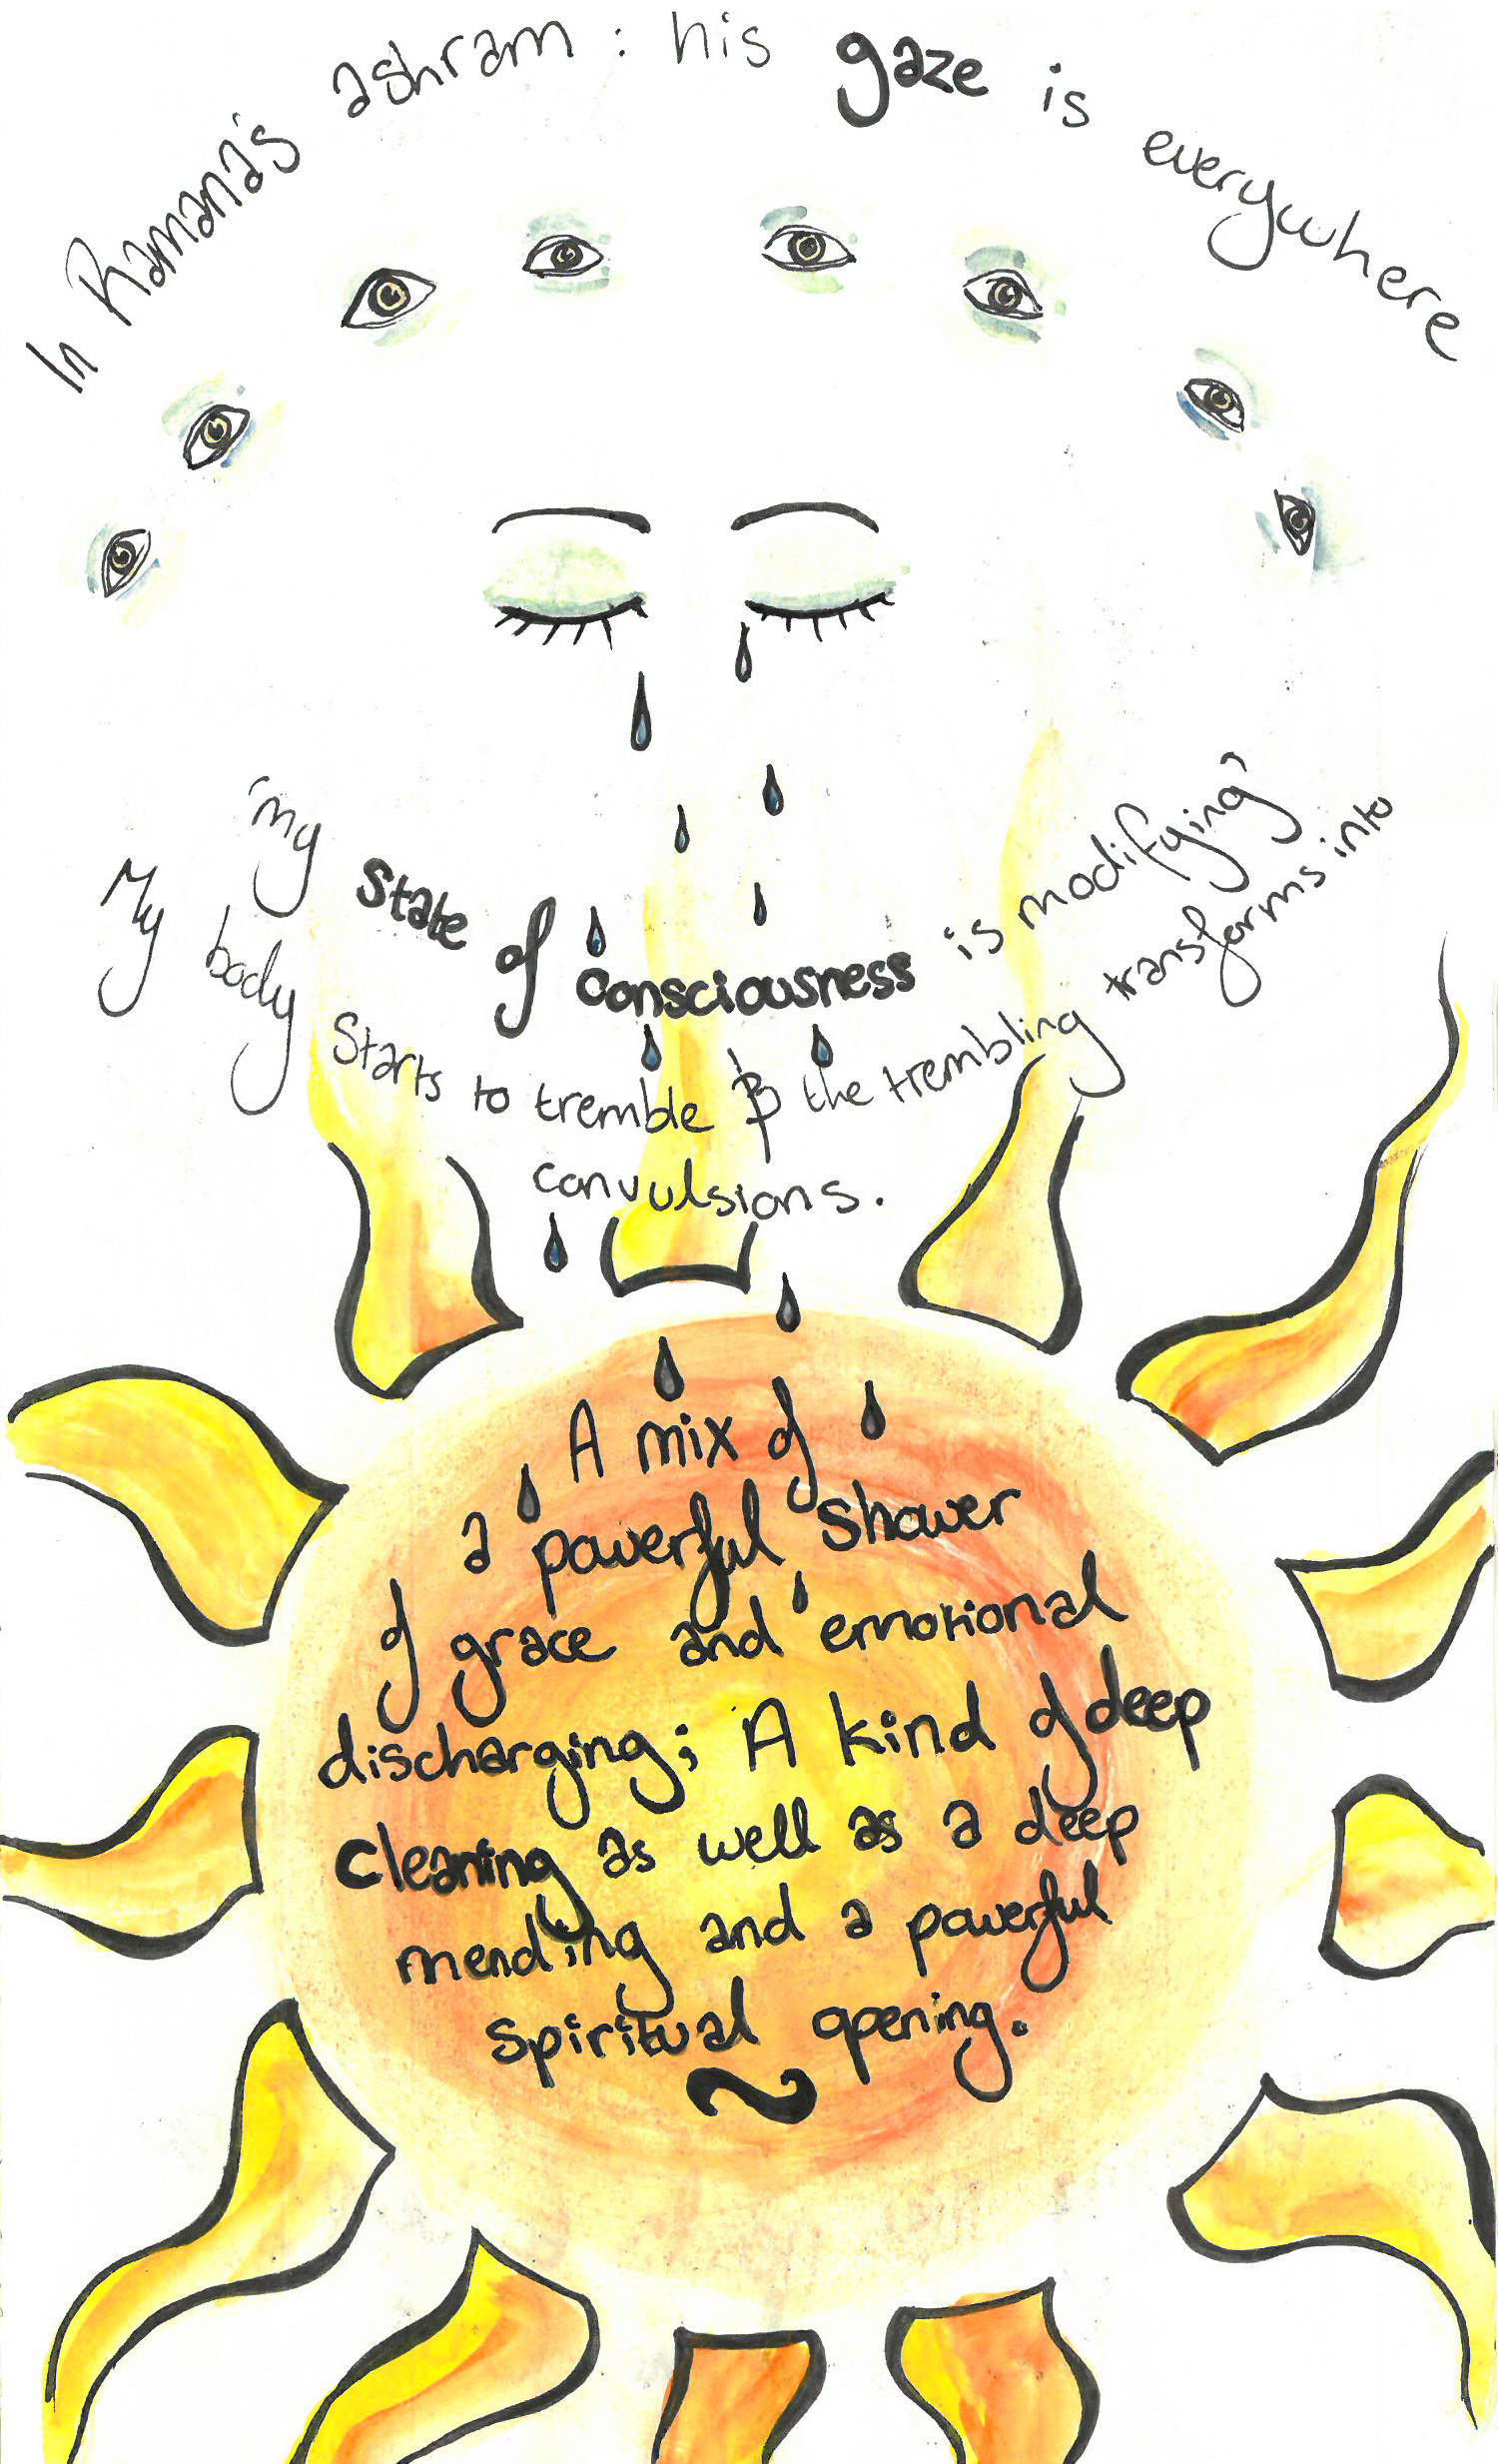 In Ramana's ashram : his gaze is everywhere
'my state of consciousness is modifying'
My body starts to tremble & the trembling transforms into
convulsions.
A mix of
a powerful shower
of grace and emotional
discharging; A kind of deep
cleaning as well as a deep
mending and a powerful
spiritual opening.